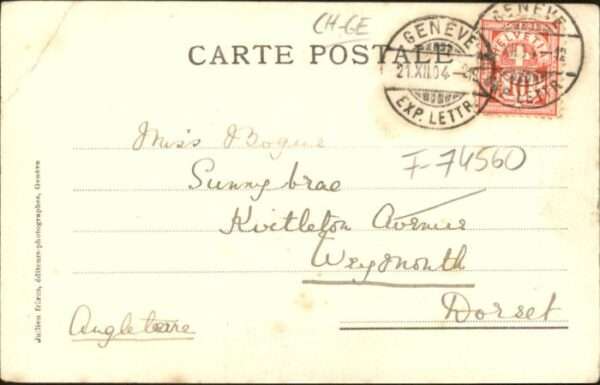 CH-GE
CARTE POSTALE
GENÈVE
21.XII.04
EXP. LETTR.
GENÈVE
HELVETIA
EXP. LETTR.
Miss Bogue
F-74560
Sunnybrae
Avenue
Weymouth
Dorset
Angleterre
Jullien frères, éditeurs-photographes, Genève